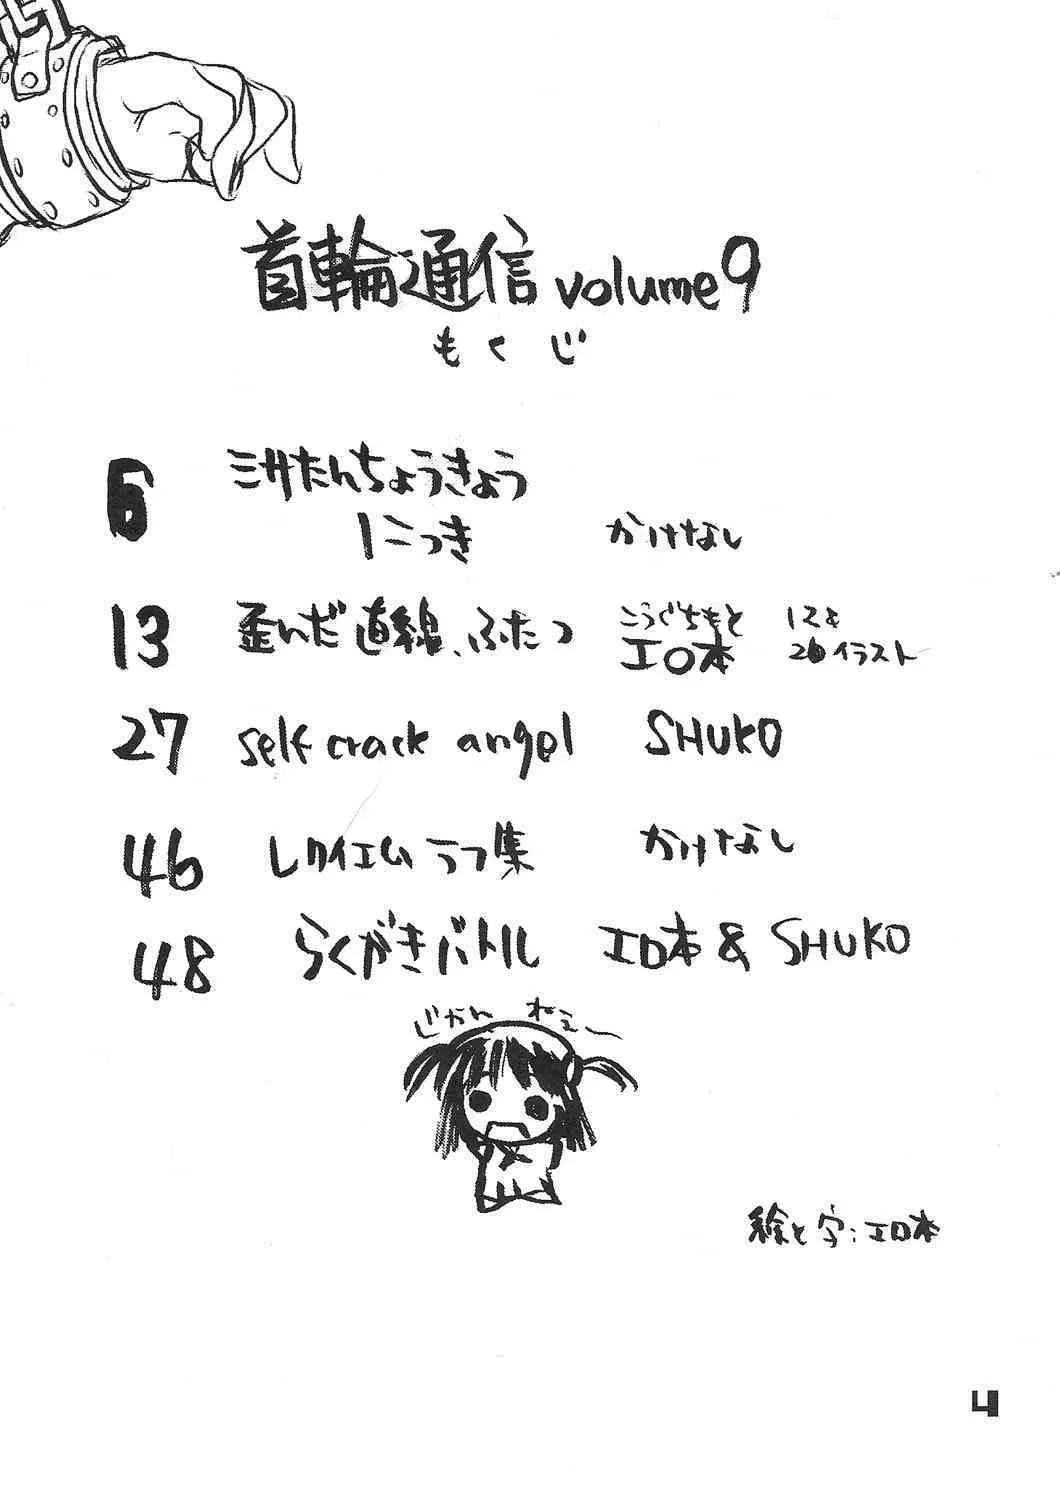 首輪通信 volume9
もくじ
6 三サたんちょうきょう
にっき かけなし
13 歪んだ直線、ふたつ こうぐちもと 12と
エロ本 26イラスト
27 self crack angel SHUKO
46 レクイエムラフ集 かけなし
48 らくがきバトル エロ本 & SHUKO
じかんねぇー
絵と字:エロ本
4